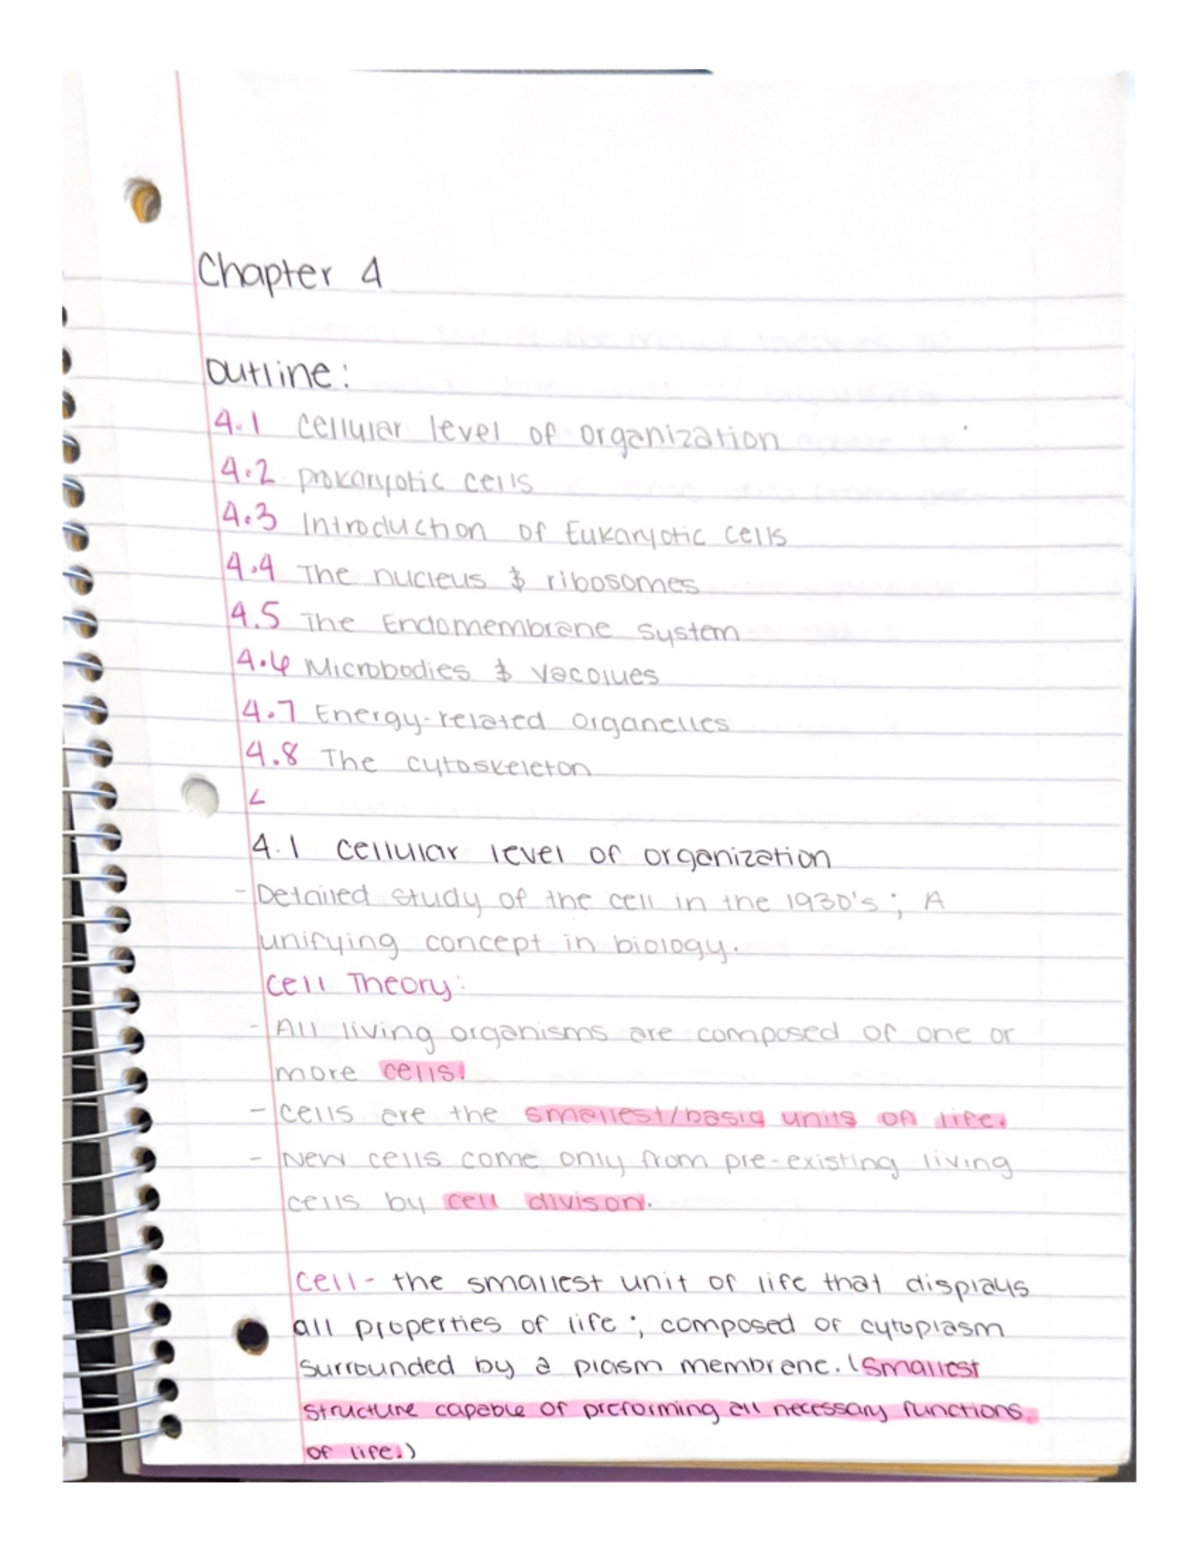 Chapter 4
Outline:
4.1 Cellular level of organization
4.2 prokaryotic cells
4.3 Introduction of Eukaryotic cells
4.4 The nucleus & ribosomes
4.5 The Endomembrane System
4.6 Microbodies & Vacolues
4.7 Energy-related organelles
4.8 The cytoskeleton
4.1 cellular level of organization
- Detailed study of the cell in the 1930's; A
unifying concept in biology.
Cell Theory:
- All living organisms are composed of one or
more cells!
- cells are the smallest/basic units of life.
- New cells come only from pre-existing living
cells by cell divison.
Cell- the smallest unit of life that displays
all properties of life; composed of cytoplasm
surrounded by a plasm membrane. (Smallest
structure capable of preforming all necessary functions
of life.)